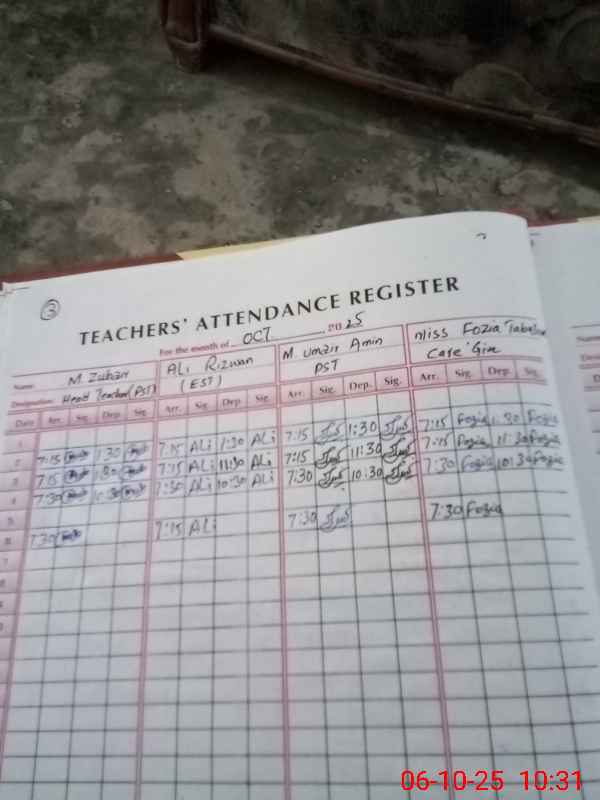 3
TEACHERS' ATTENDANCE REGISTER
For the month of OCT 2025
Name M. Zubair ALi Rizwan M. Umair Amin Miss Fozia
Designation Head Teacher (PST) (EST) PST Care Give
Date Arr. Sig. Dep. Sig. Arr. Sig. Dep. Sig. Arr. Sig. Dep. Sig. Arr. Sig. Dep. Sig.
1
2 7:15 1:30 7:15 ALi 1:30 ALi 7:15 1:30 7:15 Fozia 1:30 Fozia
3 7:15 7:15 ALi 11:30 ALi 7:15 11:30 7:15 Fozia 11:30 Fozia
4 7:30 10:30 7:30 ALi 10:30 ALi 7:30 10:30 7:30 Fozia 10:30 Fozia
5
6 7:30 7:15 ALi 7:30 7:30 Fozia
7
8
06-10-25 10:31